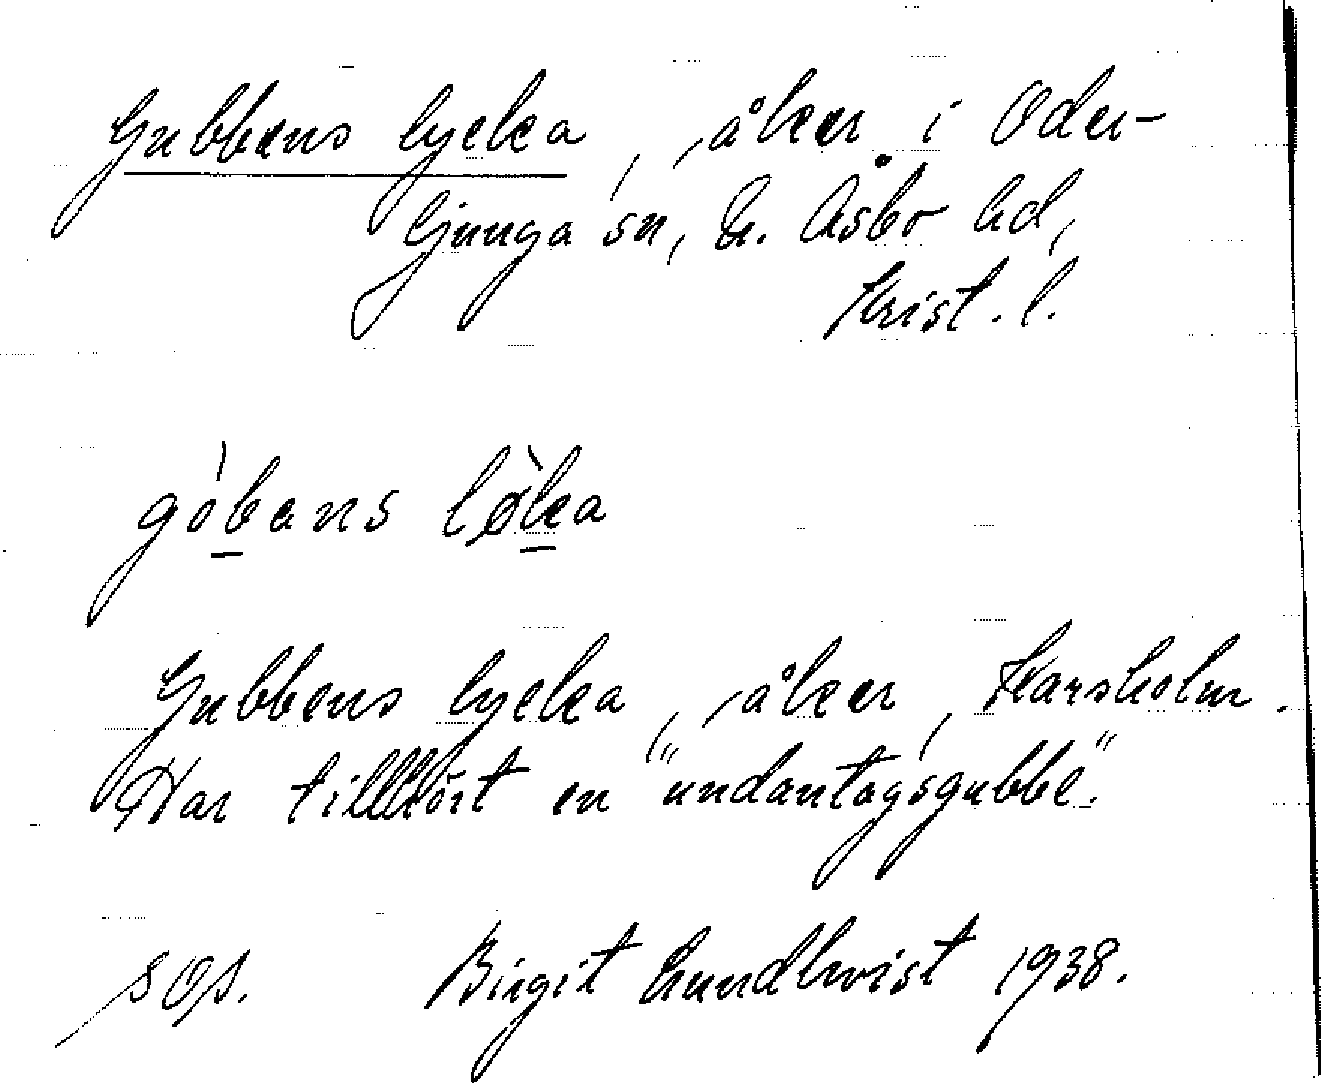 Gubbens lycka, åker i Oder-
ljunga sn, N. Åsbo hd,
Krist. l.
góbans lø̀ka
Gubbens lycka, åker, Karsholm.
Har tillhört en "undantagsgubbe".
SOS. Birgit Lundkvist 1938.